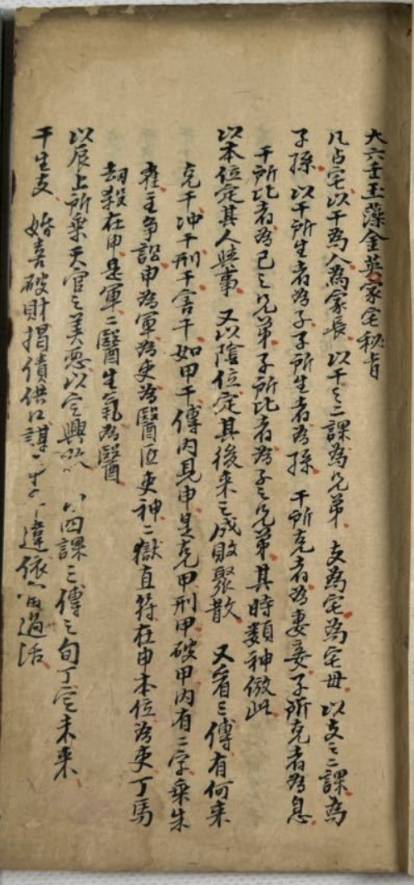 大六壬玉藻金英家宅秘旨
凡占宅以干為人為家長 以干之二課為兄弟 支為宅為宅母 以支之二課為
子孫 以干所生者為子子所生者為孫 干所克者為妻妾子所克者為息
干所比者為己之兄弟子所比者為子之兄弟其時類神倣此
以本位定其人與事 又以陰位定其後来之成敗聚散 又看三傳有何来
克干冲干刑干害干如甲干傳内見申是克甲刑甲破甲内有二字乘朱
雀主争訟申為軍為吏為醫臣吏神二獄直符在申本位為吏丁馬
劫殺在申是軍二醫生氣為醫
以辰上所乘天官之美惡以定興 四課三傳之旬丁定未来
干生支 婚喜破財揭債供口謀 違依 過活